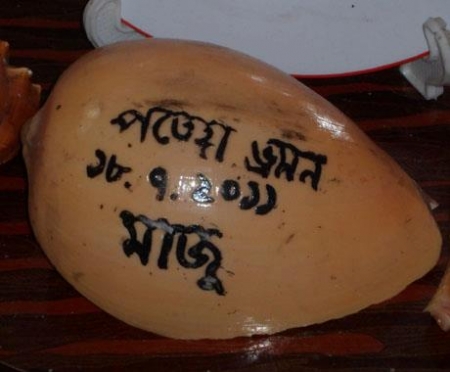 পতেঙ্গা ভ্রমন
১৮.৭.২০১১
মাজু